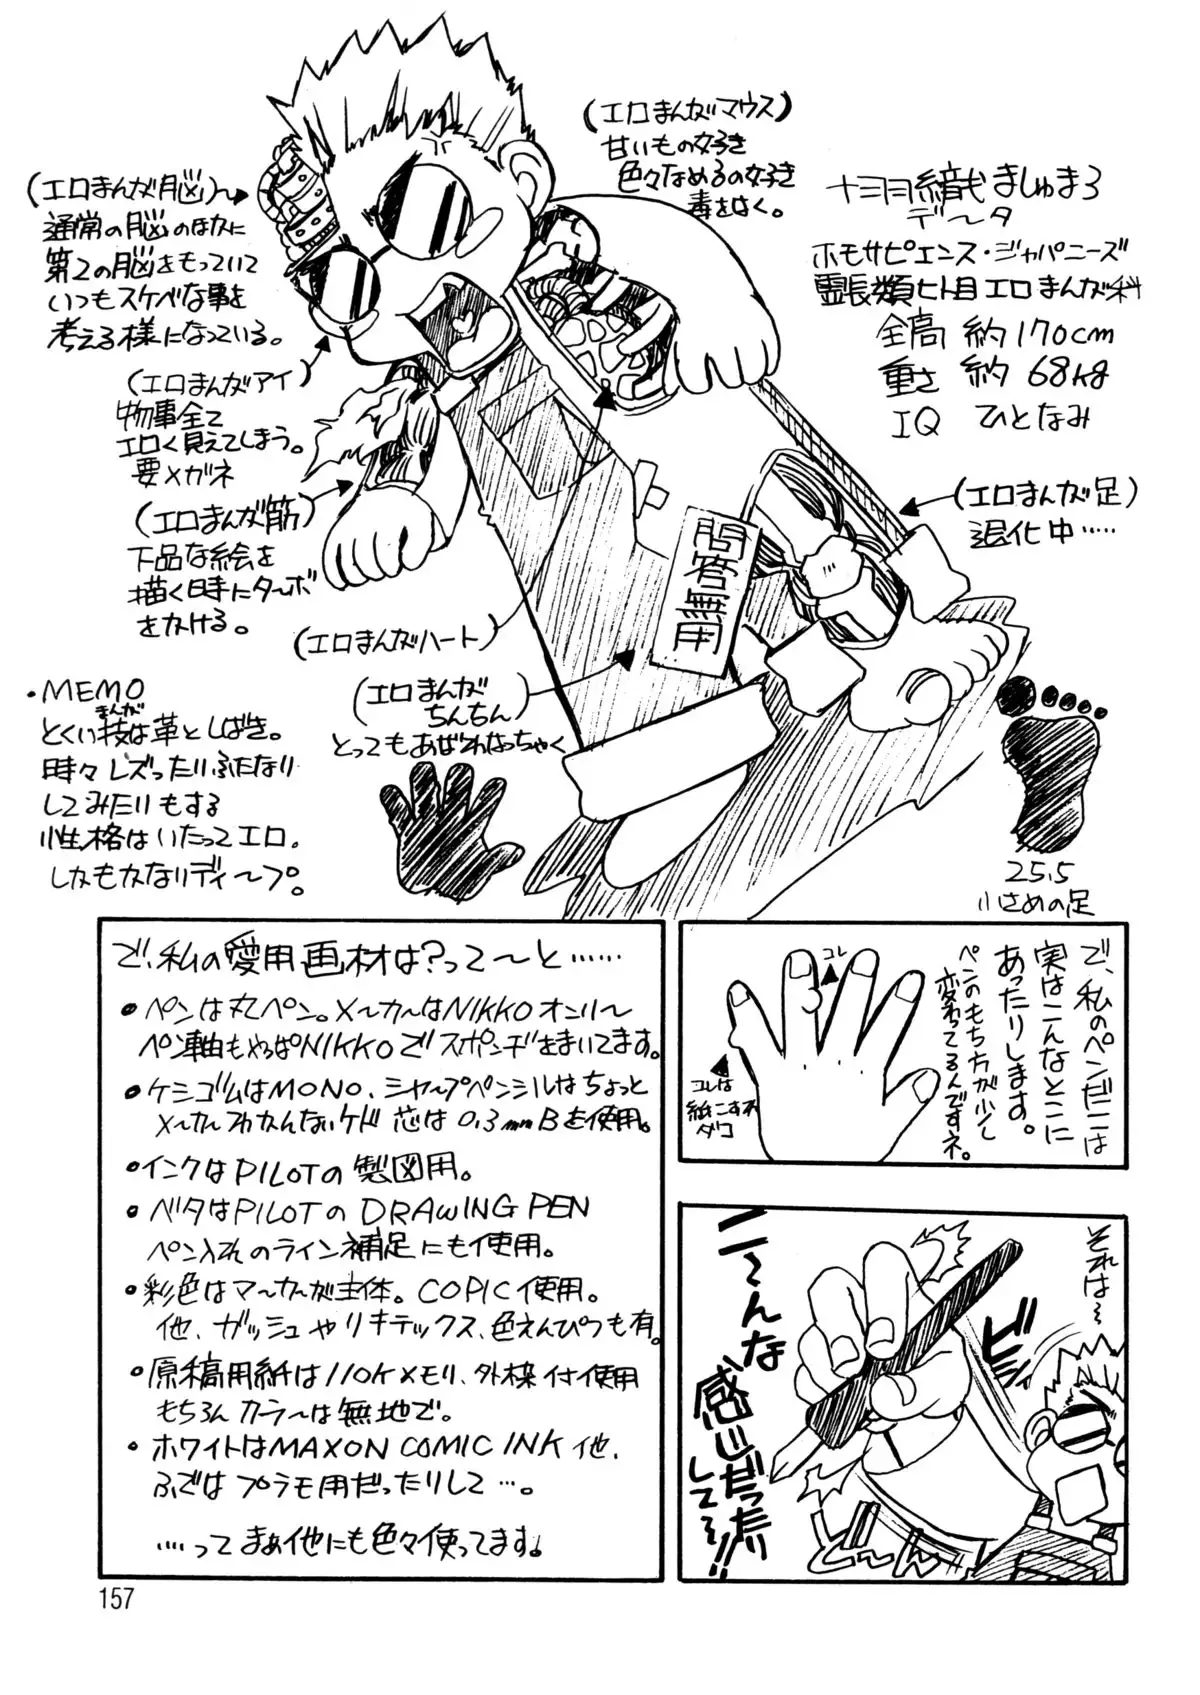 (エロまんがマウス)
甘いもの好き
色々なめるの好き
毒をはく。
ましゅまろ
データ
ホモサピエンス・ジャパニーズ
霊長類ヒト目エロまんが科
全高 約170cm
重さ 約 68kg
IQ ひとなみ
(エロまんが脳)
通常の脳のほかに
第2の脳をもっていて
いつもスケベな事を
考える様になっている。
(エロまんがアイ)
物事全て
エロく見えてしまう。
要メガネ
(エロまんが筋)
下品な絵を
描く時にターボ
をかける。
(エロまんが足)
退化中……
問答無用
(エロまんがハート)
(エロまんが
ちんちん)
とってもあばれなっちゃく
・MEMO
まんが
とくい技は革としばき。
時々レズったりふたなり
してみたりもする
性格はいたってエロ.
しかもかなりディープ。
25.5
小さめの足
で、私の愛用画材は?って〜と……
●ペンは丸ペン。メーカーはNIKKOオンリー
ペン軸もやっぱNIKKOでスポンヂをまいてます。
●ケシゴムはMONO. シャープペンシルはちょっと
メーカーわかんないケド 芯は0.3mmBを使用。
●インクはPILOTの製図用。
●ベタはPILOTの DRAWING PEN
ペン入れのライン補足にも使用。
●彩色はマーカーが主体。COPIC使用。
他、ガッシュやリキテックス、色えんぴつも有。
●原稿用紙は110Kメモリ、外枠付使用
もちろんカラーは無地で。
●ホワイトはMAXON COMIC INK 他、
ふではプラモ用だったりして…。
……ってまぁ他にも色々使ってます。
で、私のペンだこは
実はこんなとこに
あったりします。
ペンのもち方が少し
変わってるんですネ。
コレ
コレは
紙こすれ
ダコ
それは〜
ビシ
ニ〜んな
感じだったり
して〜!!
ど〜ん
157